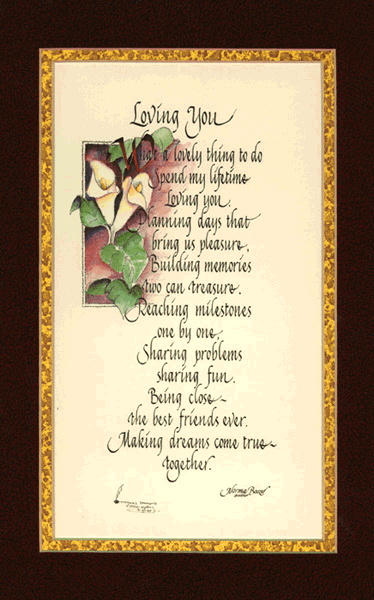 Loving You
What a lovely thing to do
Spend my lifetime
Loving you.
Planning days that
bring us pleasure,
Building memories
two can treasure.
Reaching milestones
one by one,
Sharing problems
sharing fun.
Being close
the best friends ever.
Making dreams come true
together.